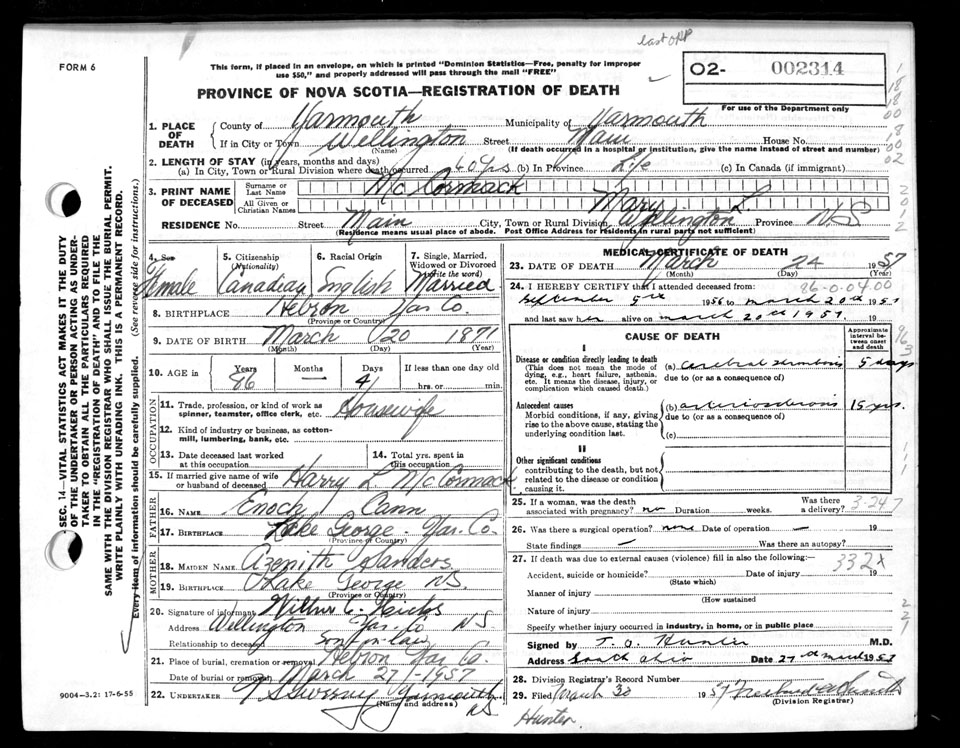 last off
FORM 6
This form, if placed in an envelope, on which is printed "Dominion Statistics—Free, penalty for improper
use $50," and properly addressed will pass through the mail "FREE"
O2- 002314
For use of the Department only
PROVINCE OF NOVA SCOTIA—REGISTRATION OF DEATH
1. PLACE OF DEATH County of Yarmouth Municipality of Yarmouth
If in City or Town Wellington (Name) Street Main House No.
(If death occurred in a hospital or institution, give the name instead of street and number)
2. LENGTH OF STAY (in years, months and days)
(a) In City, Town or Rural Division where death occurred 40 yrs (b) In Province Life (c) In Canada (if immigrant)
3. PRINT NAME OF DECEASED Surname or Last Name McCormack
All Given or Christian Names Mary L.
RESIDENCE No. Street Main City, Town or Rural Division Wellington Province N S
(Residence means usual place of abode. Post Office Address for residents in rural parts not sufficient)
4. Sex Female
5. Citizenship (Nationality) Canadian
6. Racial Origin English
7. Single, Married, Widowed or Divorced (Write the word) Married
8. BIRTHPLACE Hebron Yar Co.
(Province or Country)
9. DATE OF BIRTH March 20 1871
(Month) (Day) (Year)
10. AGE in Years 86 Months — Days 4 If less than one day old
hrs. or min.
OCCUPATION
11. Trade, profession, or kind of work as spinner, teamster, office clerk, etc. Housewife
12. Kind of industry or business, as cotton-mill, lumbering, bank, etc.
13. Date deceased last worked at this occupation
14. Total yrs. spent in this occupation
15. If married give name of wife or husband of deceased Harry L McCormack
FATHER
16. NAME Enoch Cann
17. BIRTHPLACE Lake George Yar. Co.
(Province or Country)
MOTHER
18. MAIDEN NAME Azenith Sanders
19. BIRTHPLACE Lake George N.S.
(Province or Country)
20. Signature of informant Wilbur C. Hicks
Address Wellington Yar. Co N S
Relationship to deceased Son-in-law
21. Place of burial, cremation or removal Hebron Yar Co.
Date of burial or removal March 27/-1957
22. UNDERTAKER Sweeny Yarmouth N.S.
(Name and address)
9004-3.21 17-6-55
SEC. 14—VITAL STATISTICS ACT MAKES IT THE DUTY
OF THE UNDERTAKER OR PERSON ACTING AS UNDER-
TAKER TO OBTAIN ALL THE PARTICULARS REQUIRED
IN THE "REGISTRATION OF DEATH" AND TO FILE THE
SAME WITH THE DIVISION REGISTRAR WHO SHALL ISSUE THE BURIAL PERMIT.
WRITE PLAINLY WITH UNFADING INK. THIS IS A PERMANENT RECORD.
Every item of information should be carefully supplied. (See reverse side for instructions.)
MEDICAL CERTIFICATE OF DEATH
23. DATE OF DEATH March 24 1957
(Month) (Day) (Year)
24. I HEREBY CERTIFY that I attended deceased from:
September 5th 1956 to March 20th 1957
and last saw her alive on March 20th 1957. 19
CAUSE OF DEATH
Approximate interval between onset and death
I
Disease or condition directly leading to death
(This does not mean the mode of dying, e.g., heart failure, asthenia, etc. It means the disease, injury, or complication which caused death.)
(a) Cerebral thrombosis 5 days
due to (or as a consequence of)
Antecedent causes
Morbid conditions, if any, giving rise to the above cause, stating the underlying condition last.
(b) arteriosclerosis 15 yrs.
due to (or as a consequence of)
(c)
II
Other significant conditions
contributing to the death, but not related to the disease or condition causing it.
25. If a woman, was the death associated with pregnancy? no Duration weeks. Was there a delivery?
3-247
26. Was there a surgical operation? none Date of operation — 19
State findings — Was there an autopsy?
27. If death was due to external causes (violence) fill in also the following:—
332X
Accident, suicide or homicide? (State which) Date of injury 19
Manner of injury
(How sustained
Nature of injury
Specify whether injury occurred in industry, in home, or in public place
Signed by T. O. Hunter M.D.
Address South Ohio Date 27th March 1957
28. Division Registrar's Record Number
29. Filed March 30 1957
(Division Registrar)
Hunter